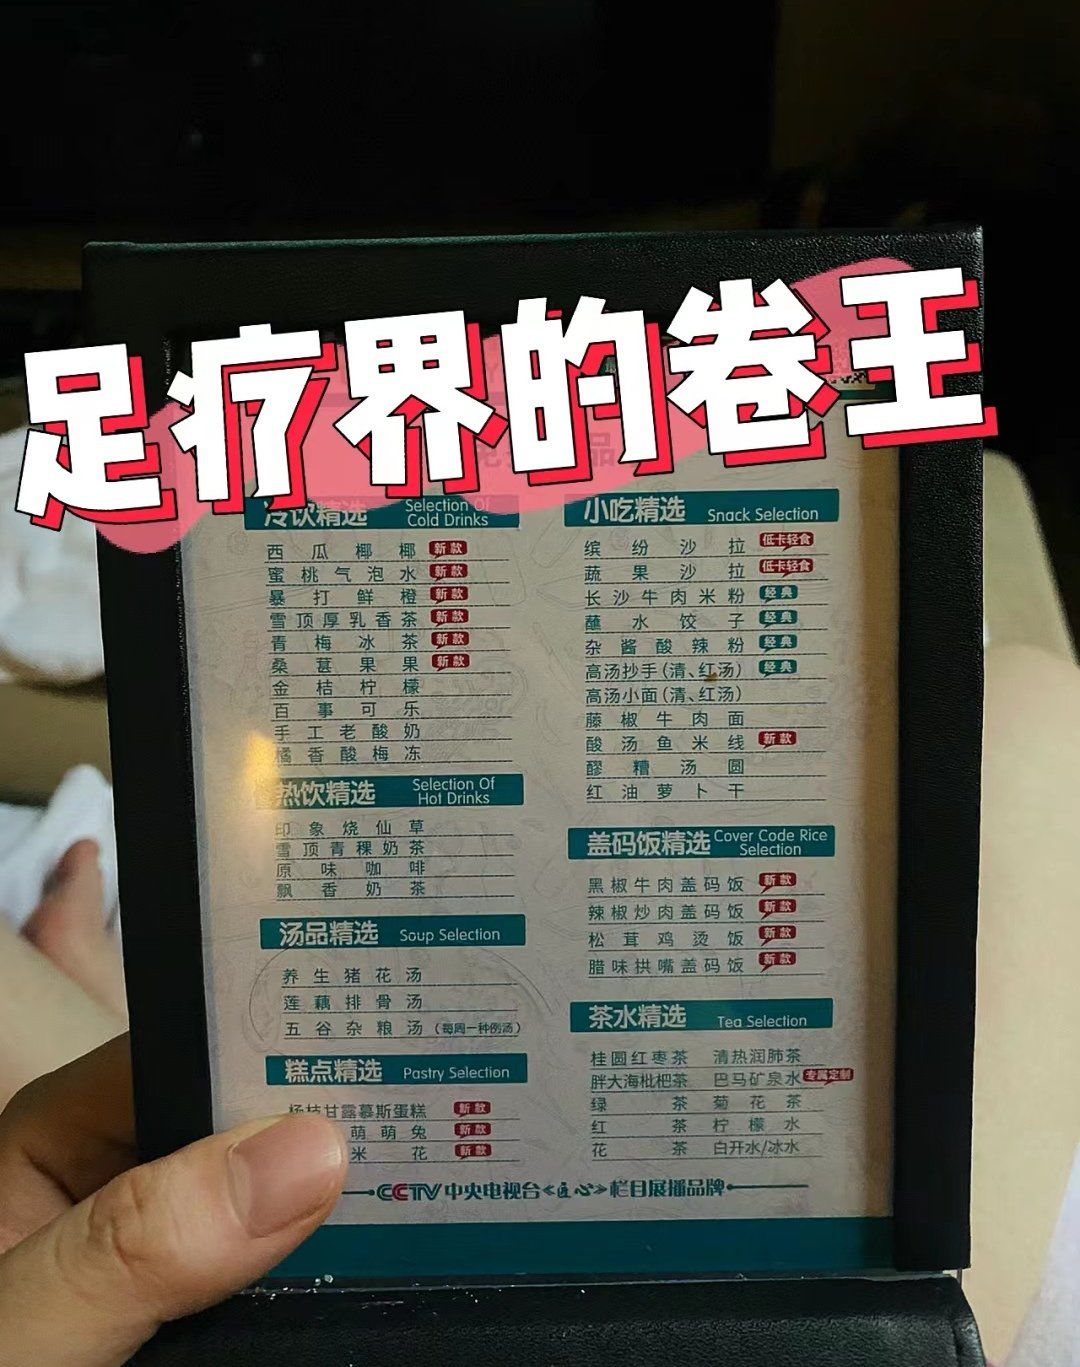 足疗界的卷王
品
冷饮精选 Selection Of Cold Drinks
西瓜椰椰 新款
蜜桃气泡水 新款
暴打鲜橙 新款
雪顶厚乳香茶 新款
青梅冰茶 新款
桑葚果果 新款
金桔柠檬
百事可乐
手工老酸奶
橘香酸梅冻
热饮精选 Selection Of Hot Drinks
印象烧仙草
雪顶青稞奶茶
原味咖啡
飘香奶茶
汤品精选 Soup Selection
养生猪花汤
莲藕排骨汤
五谷杂粮汤(每周一种例汤)
糕点精选 Pastry Selection
杨枝甘露慕斯蛋糕 新款
萌萌兔 新款
米花 新款
小吃精选 Snack Selection
缤纷沙拉 低卡轻食
蔬果沙拉 低卡轻食
长沙牛肉米粉 经典
蘸水饺子 经典
杂酱酸辣粉 经典
高汤抄手(清、红汤) 经典
高汤小面(清、红汤)
藤椒牛肉面
酸汤鱼米线 新款
醪糟汤圆
红油萝卜干
盖码饭精选 Cover Code Rice Selection
黑椒牛肉盖码饭 新款
辣椒炒肉盖码饭 新款
松茸鸡烫饭 新款
腊味拱嘴盖码饭 新款
茶水精选 Tea Selection
桂圆红枣茶 清热润肺茶
胖大海枇杷茶 巴马矿泉水 专属定制
绿茶 菊花茶
红茶 柠檬水
花茶 白开水/冰水
CCTV 中央电视台《匠心》栏目展播品牌